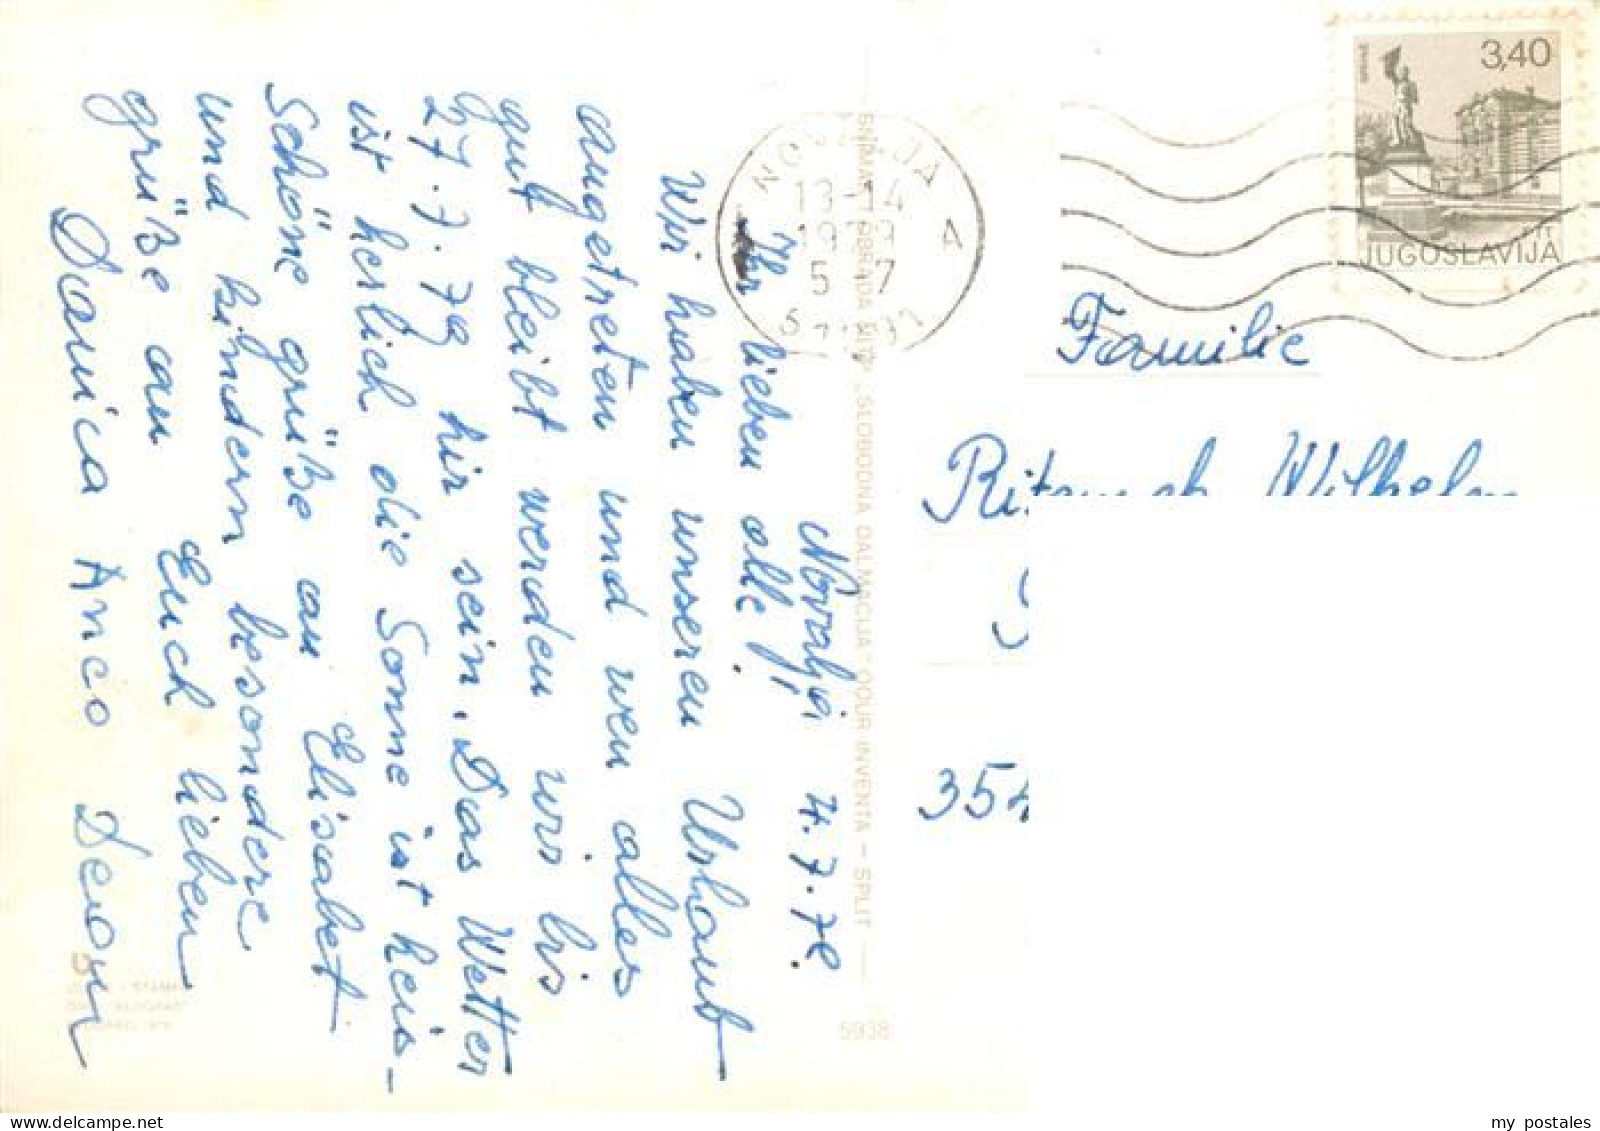 Novalja 4.7.79.
Ihr lieben alle!
Wir haben unseren Urlaub
angetreten und wen alles
gut bleibt werden wir bis
27.7.79 hir sein. Das Wetter
ist herlich die Sonne ist heis-
Schöne grüße an Elisabet
und kindern besondere
grüße an Euch lieben
Danica Anco Dejan
SNIMAK I OBRADA
„SLOBODNA DALMACIJA" OOUR INVENTA – SPLIT
5938
NOVALJA
13-14
1979
5 7
A
3,40
JUGOSLAVIJA
Familie
Wilhelm
354
my postales